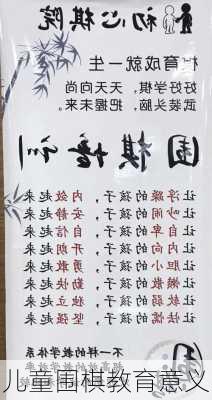 初心棋院
棋育成就一生
好好学棋，天天向尚
武装头脑，把握未来。
围棋培训
让浮躁的孩子，内敛起来
让吵闹的孩子，安静起来
让自卑的孩子，自信起来
让内向的孩子，开朗起来
让胆小的孩子，勇敢起来
让懒散的孩子，勤快起来
让软弱的孩子，独立起来
让怯懦的孩子，坚强起来
不一样的教学体系
儿童围棋教育意义